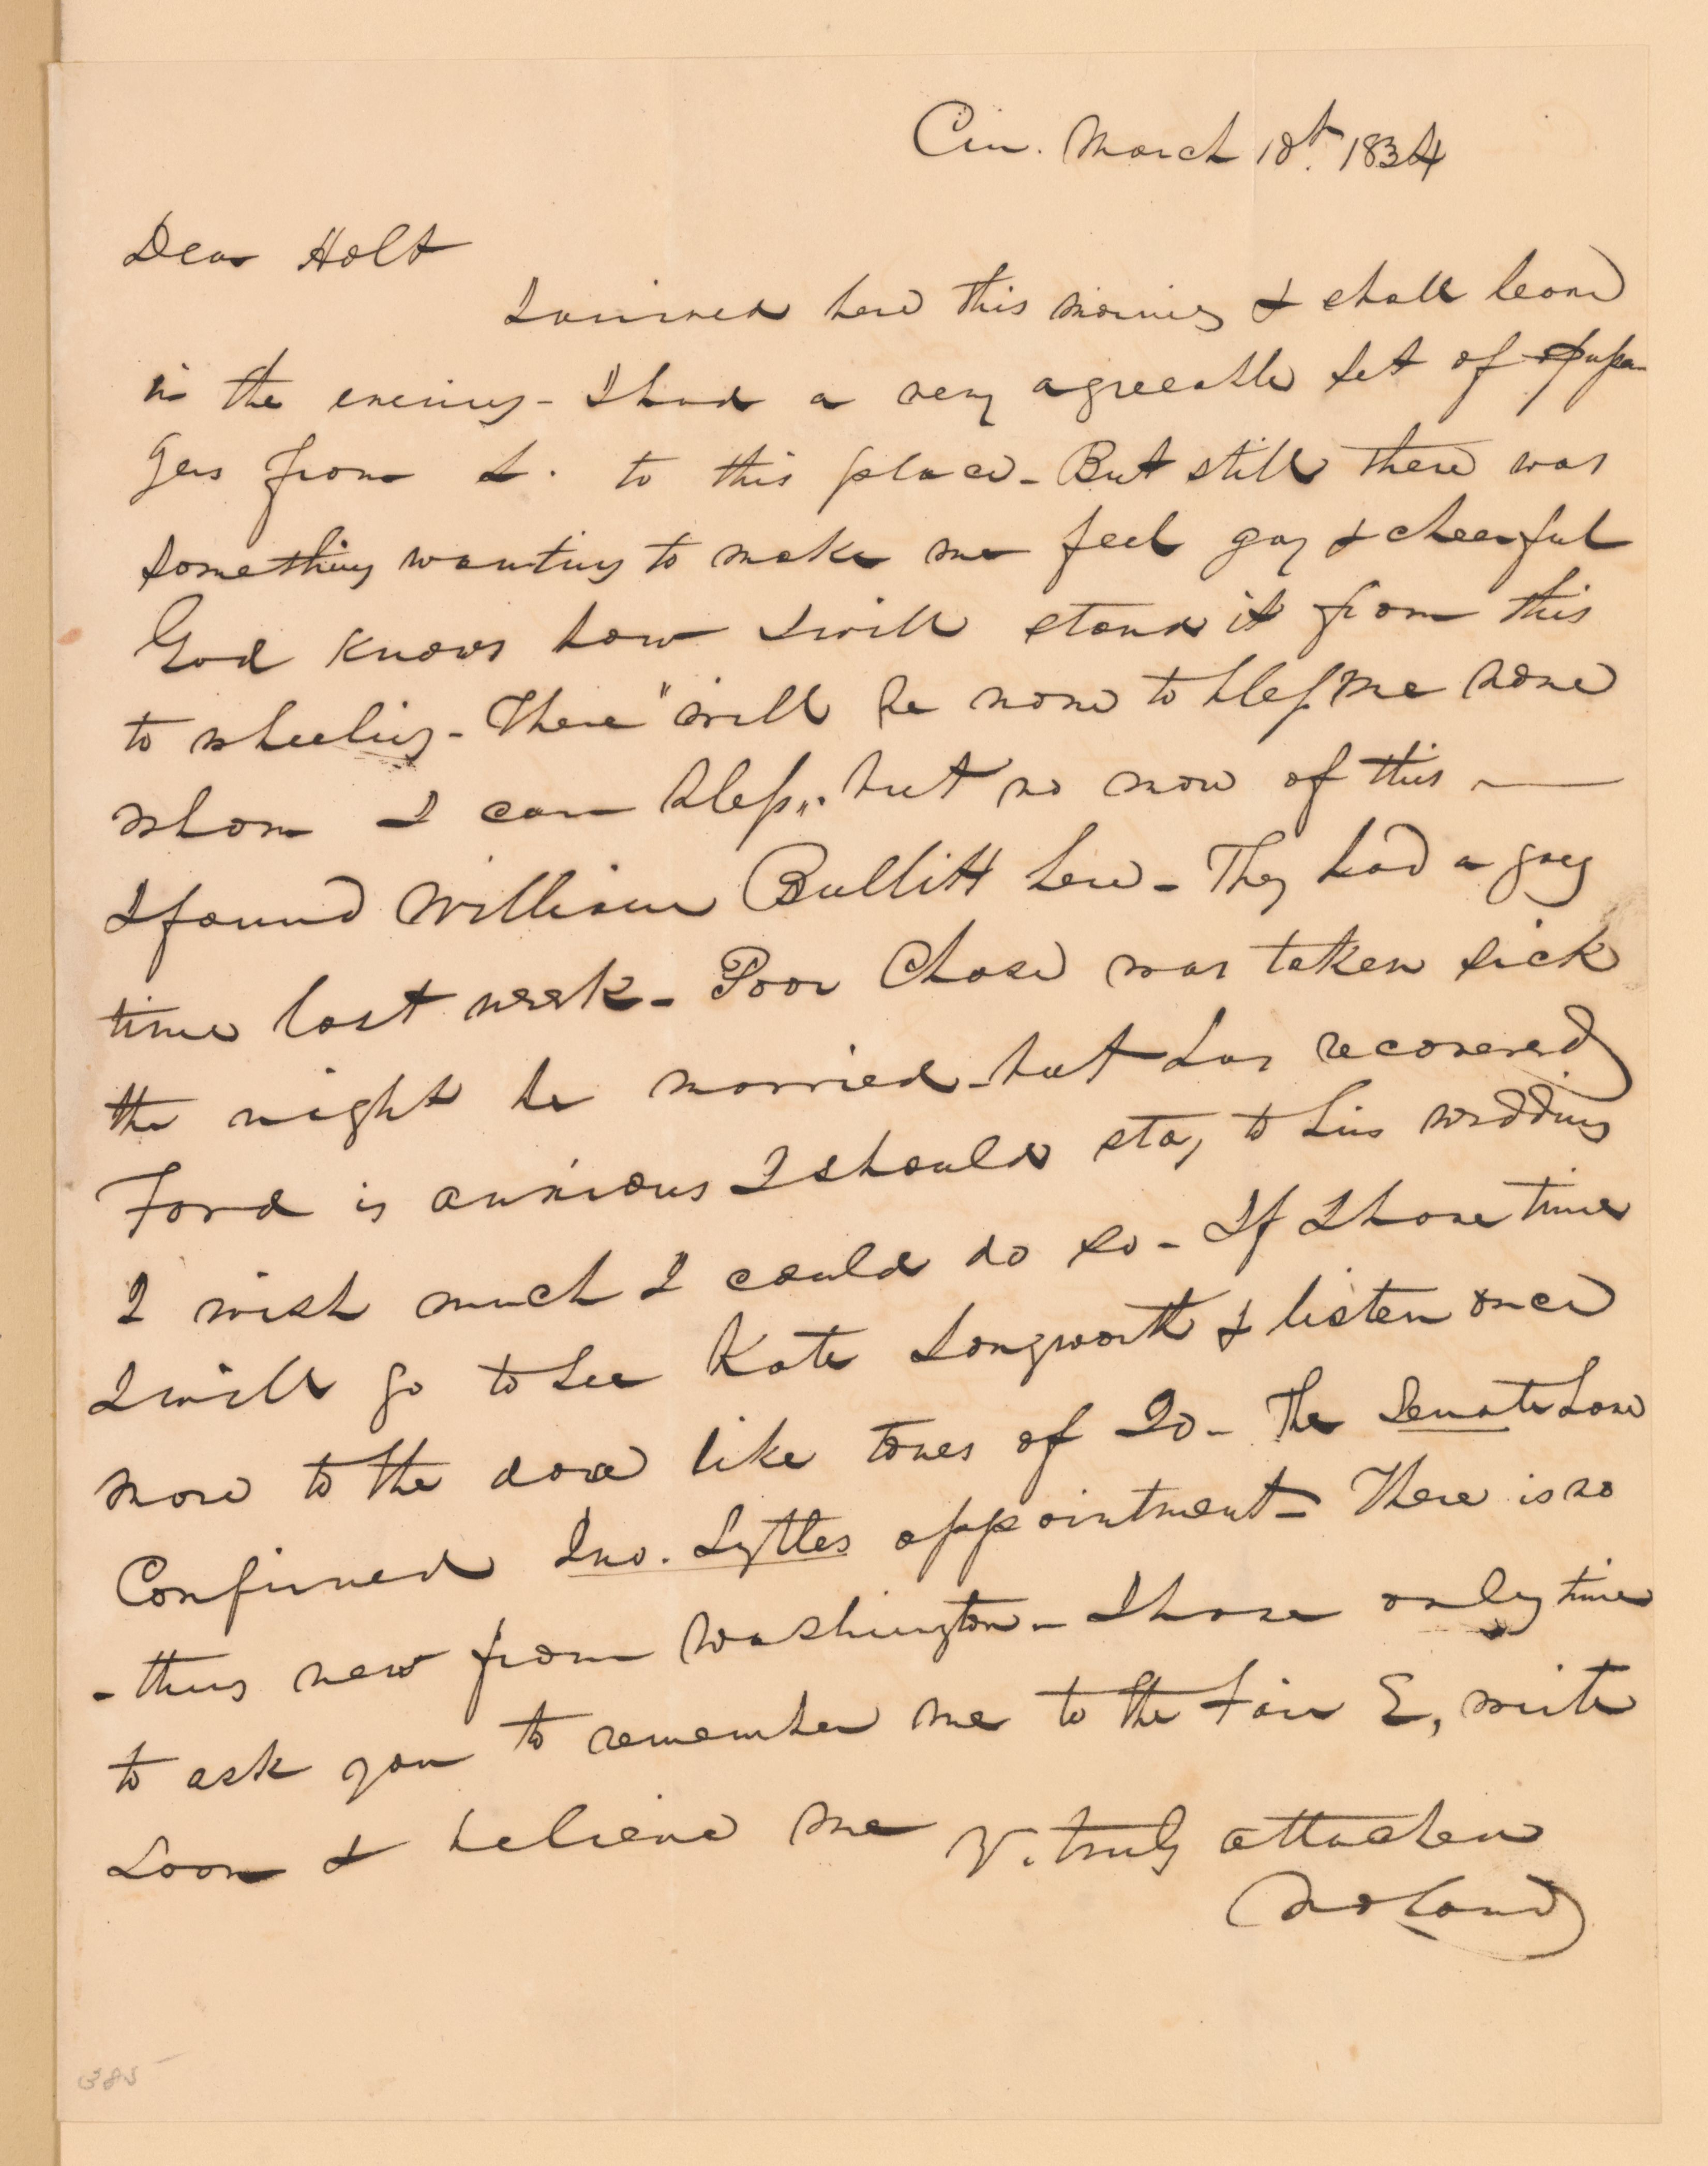 Cin. March 18th. 1834
Dear Holt
I arrived here this morning & shall leave
in the evening - I had a very agreeable set of passen
gers from L. to this place - But still there was
something wanting to make me feel gay & cheerful
God knows how I will stand it from this
to wheeling - There "will be none to bless me none
whom I can bless". but no more of this —
I found William Bullitt here - They had a gay
time last week - Poor Chase was taken sick
the night he married - but has recovered
Ford is anxious I should stay to his wedding
I wish much I could do so - If I have time
I will go to see Kate Longworth & listen once
more to the dove like tones of Jo - The Senate have
Confirmed Jno. Lyttles appointment - There is no
-thing new from Washington - I have only time
to ask you to remember me to the Fair E, write
soon & believe me V. truly attached
Noland
385